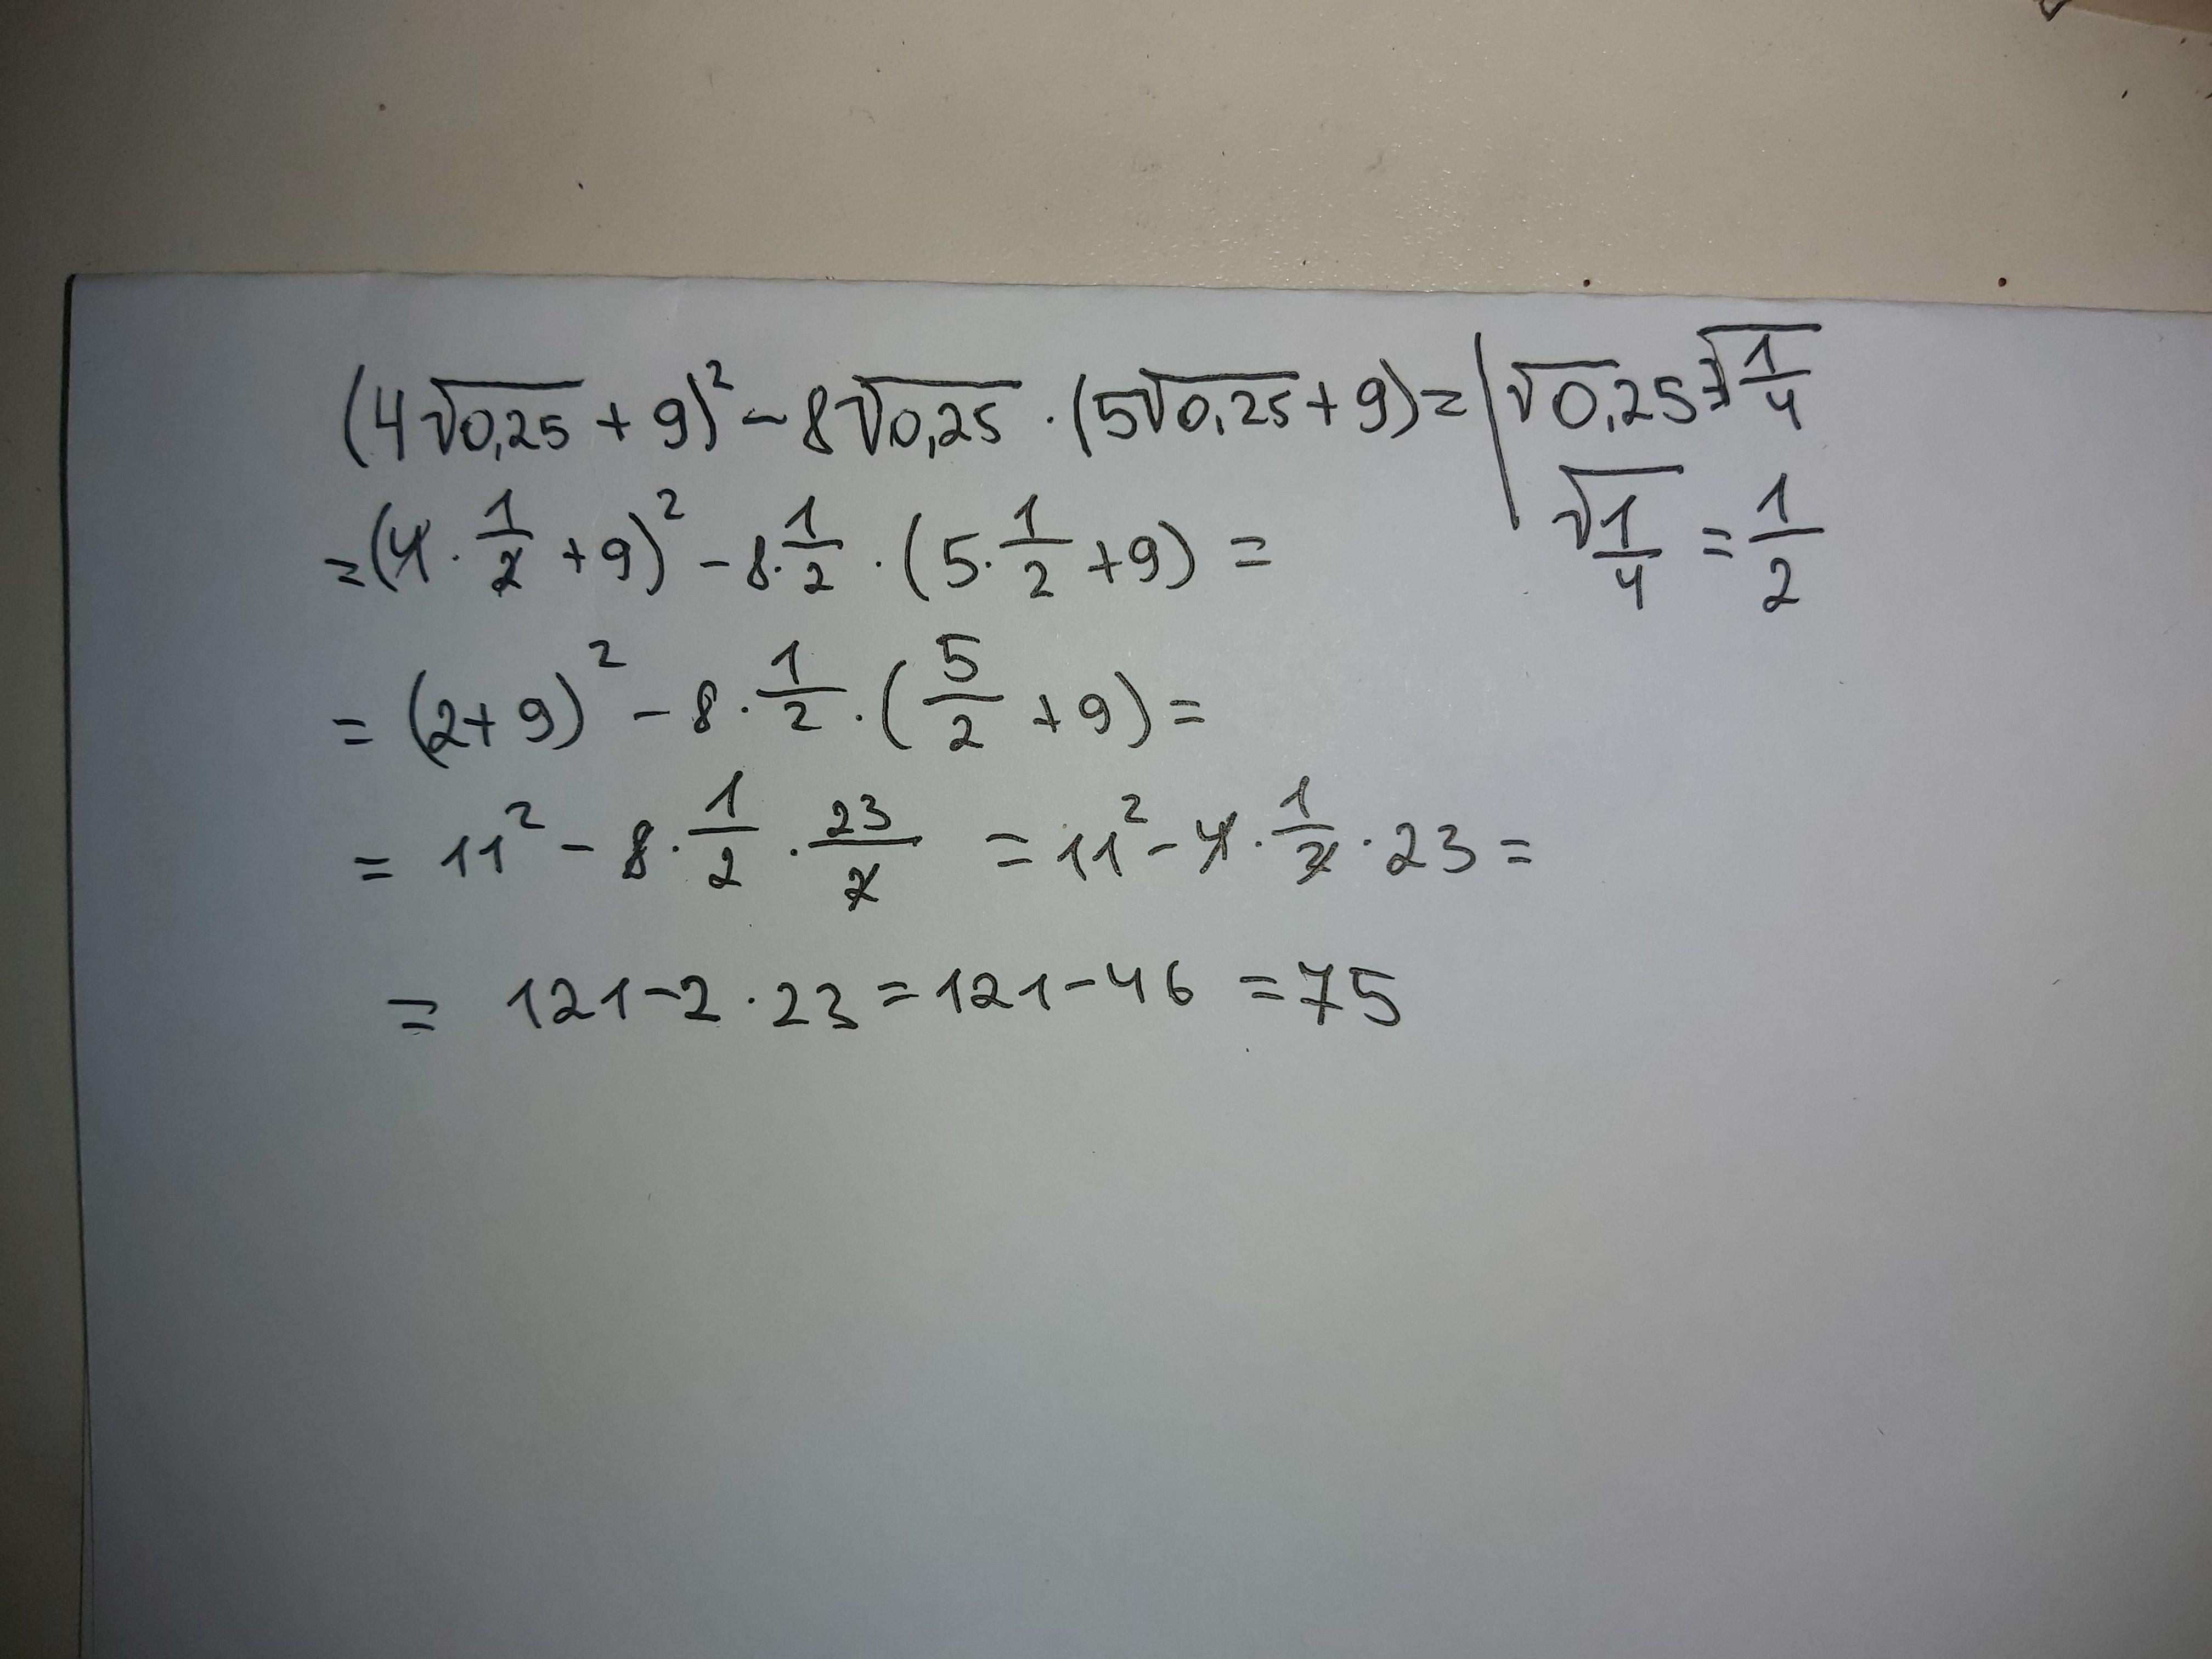 (4√0,25 + 9)² - 8√0,25 · (5√0,25 + 9) = | √0,25 = √1/4
= (4 · 1/2 + 9)² - 8 · 1/2 · (5 · 1/2 + 9) = √1/4 = 1/2
= (2 + 9)² - 8 · 1/2 · (5/2 + 9) =
= 11² - 8 · 1/2 · 23/2 = 11² - 4 · 1/2 · 23 =
= 121 - 2 · 23 = 121 - 46 = 75